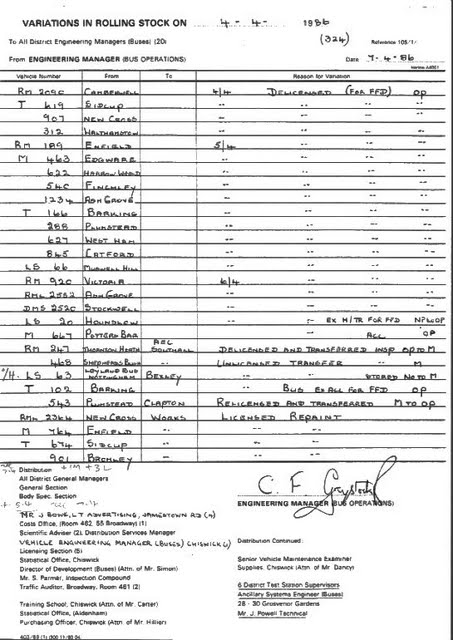 VARIATIONS IN ROLLING STOCK ON 4-4- 1986
To All District Engineering Managers (Buses) (20) (324) Reference 105/1
From ENGINEERING MANAGER (BUS OPERATIONS) Date 7-4-86
Vehicle Number From To Reason for Variation
RM 2090 CAMBERWELL 4/4 DELICENSED (FOR FFD) OP
T 619 SIDCUP -- -- --
907 NEW CROSS -- -- --
312 WALTHAMSTOW -- -- --
RM 189 ENFIELD 5/4 -- -- --
M 463 EDGWARE -- -- --
622 HARROW WEALD -- -- --
540 FINCHLEY -- -- --
1234 ASH GROVE -- -- --
T 166 BARKING -- -- --
288 PLUMSTEAD -- -- --
627 WEST HAM -- -- --
845 CATFORD -- -- --
LS 66 MUSWELL HILL -- -- --
RM 920 VICTORIA 6/4 -- -- --
RML 2552 ASH GROVE -- -- --
DMS 2520 STOCKWELL -- -- --
LS 20 HOUNSLOW -- EX H/TR FOR FFD
M 667 POTTERS BAR -- ACC OP
RM 247 THORNTON HEATH AEC SOUTHALL DELICENSED AND TRANSFERRED INSP OP TO M
468 SHEPHERDS BUSH -- UNLICENSED TRANSFER -- M
LS 63 LEYLAND BUS NOTTINGHAM BEXLEY -- STORED N TO M
T 102 BARKING -- BUS EX ACC FOR FFD OP
543 PLUMSTEAD CLAPTON RELICENSED AND TRANSFERRED M TO OP
RML 2364 NEW CROSS WORKS LICENSED REPAINT
M 764 ENFIELD -- -- --
T 674 SIDCUP -- -- --
901 BROMLEY -- -- --
Distribution +1M +3L
All District General Managers
General Section
Body Spec. Section
MR J BOWE, LT ADVERTISING, JAMESTOWN RD (4)
Costs Office, (Room 462, 55 Broadway) (1)
Scientific Adviser (2), Distribution Services Manager
VEHICLE ENGINEERING MANAGER (BUSES) CHISWICK (6)
Licensing Section (5)
Statistical Office, Chiswick
Director of Development (Buses) (Attn. of Mr. Simon)
Mr. S. Parmer, Inspection Compound
Traffic Auditor, Broadway, Room 461 (2)
Training School, Chiswick (Attn. of Mr. Carter)
Statistical Office, (Aldenham)
Purchasing Officer, Chiswick (Attn. of Mr. Hillier)
C F
ENGINEERING MANAGER (BUS OPERATIONS)
Distribution Continued:
Senior Vehicle Maintenance Examiner
Supplies, Chiswick (Attn of Mr. Dancy)
6 District Test Station Supervisors
Ancillary Systems Engineer (Buses)
28 - 30 Grosvenor Gardens
Mr. J. Powell Technical